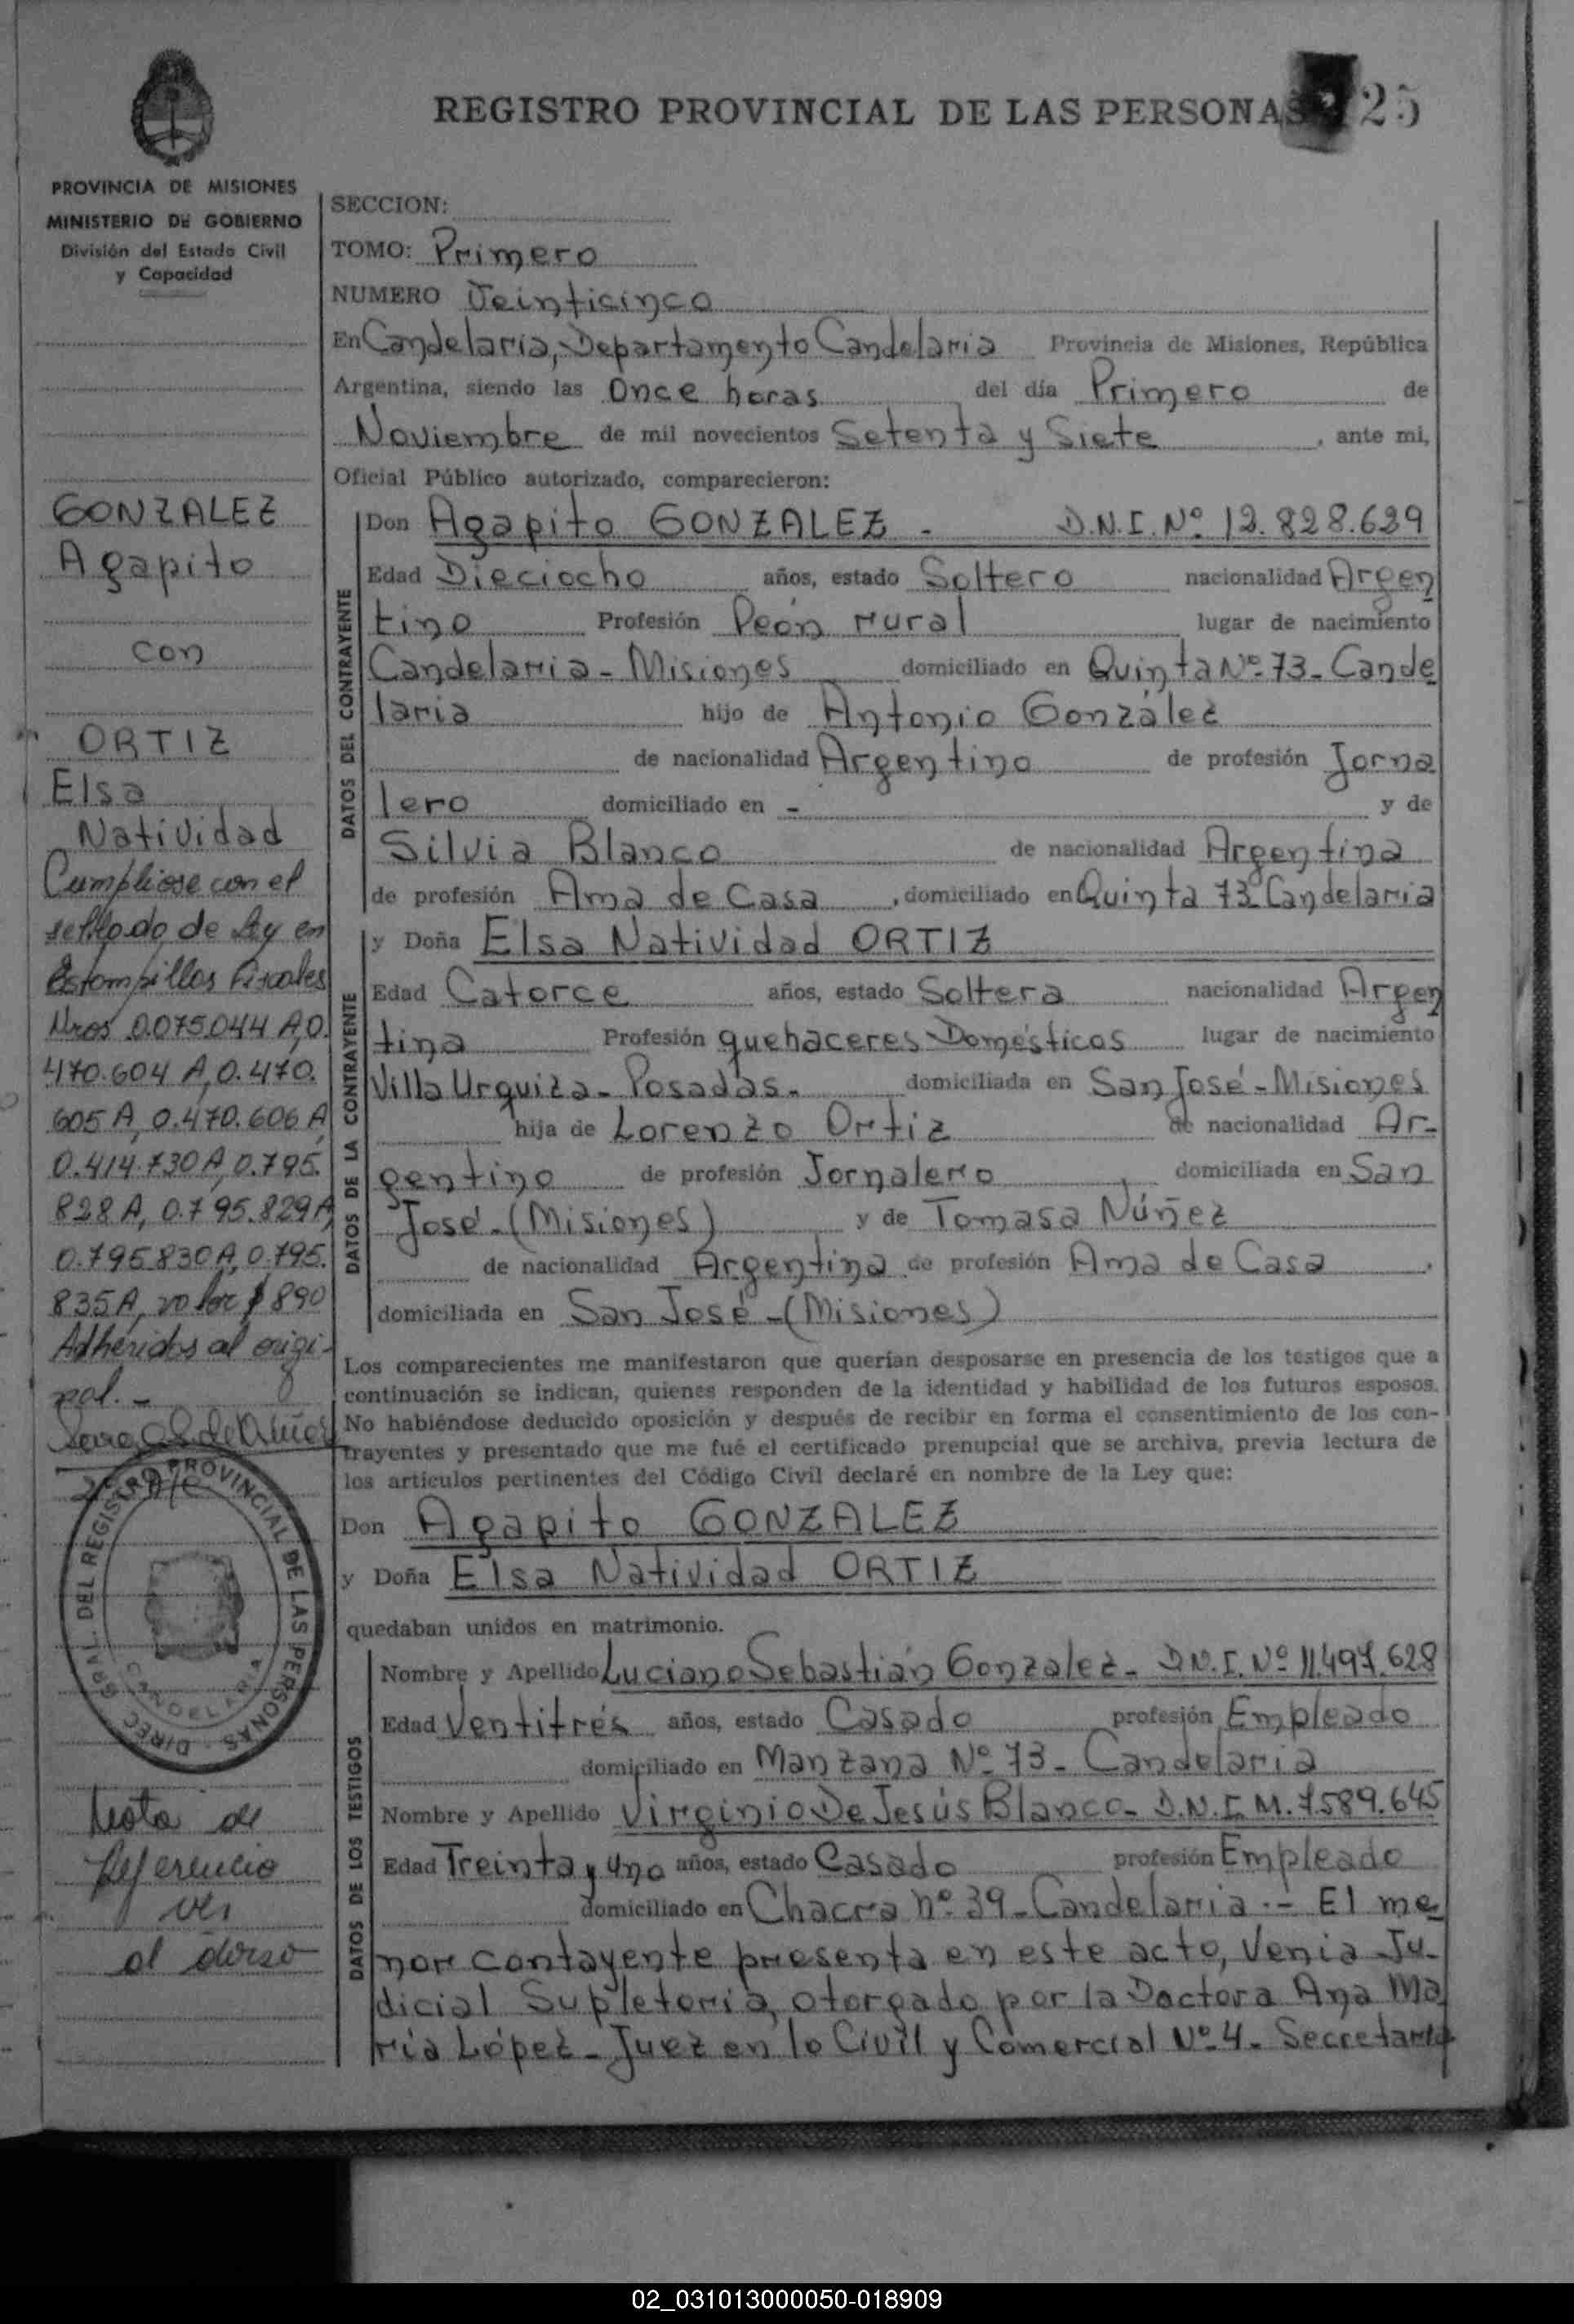 REGISTRO PROVINCIAL DE LAS PERSONAS 25
PROVINCIA DE MISIONES
MINISTERIO DE GOBIERNO
División del Estado Civil
y Capacidad
GONZALEZ
Agapito
con
ORTIZ
Elsa
Natividad
Cumpliose con el
sellado de Ley en
Estampillas Fiscales
Nros 0.075.044 A, 0.
470.604 A, 0.470.
605 A, 0.470.606 A,
0.414.730 A, 0.795.
828 A, 0.795.829 A,
0.795.830 A, 0.795.
835 A, valor $ 890
Adheridos al origi-
nal.-
DIREC. GRAL. DEL REGISTRO PROVINCIAL DE LAS PERSONAS
CANDELARIA
Nota de
Referencia
ver
al dorso
SECCION:
TOMO: Primero
NUMERO Veinticinco
En Candelaria, Departamento Candelaria Provincia de Misiones, República
Argentina, siendo las Once horas del día Primero de
Noviembre de mil novecientos Setenta y Siete, ante mi,
Oficial Público autorizado, comparecieron:
DATOS DEL CONTRAYENTE
Don Agapito GONZALEZ - D.N.I. Nº 12.828.629
Edad Dieciocho años, estado Soltero nacionalidad Argen
tino Profesión Peón rural lugar de nacimiento
Candelaria - Misiones domiciliado en Quinta Nº 73 - Cande
laria hijo de Antonio González
de nacionalidad Argentino de profesión Jorna
lero domiciliado en - y de
Silvia Blanco de nacionalidad Argentina
de profesión Ama de Casa, domiciliado en Quinta 73 Candelaria
DATOS DE LA CONTRAYENTE
y Doña Elsa Natividad ORTIZ
Edad Catorce años, estado Soltera nacionalidad Argen
tina Profesión quehaceres Domésticos lugar de nacimiento
Villa Urquiza - Posadas. domiciliada en San José - Misiones
hija de Lorenzo Ortiz de nacionalidad Ar-
gentino de profesión Jornalero domiciliada en San
José - (Misiones) y de Tomasa Núñez
de nacionalidad Argentina de profesión Ama de Casa,
domiciliada en San José - (Misiones)
Los comparecientes me manifestaron que querían desposarse en presencia de los testigos que a
continuación se indican, quienes responden de la identidad y habilidad de los futuros esposos.
No habiéndose deducido oposición y después de recibir en forma el consentimiento de los con-
trayentes y presentado que me fué el certificado prenupcial que se archiva, previa lectura de
los artículos pertinentes del Código Civil declaré en nombre de la Ley que:
Don Agapito GONZALEZ
y Doña Elsa Natividad ORTIZ
quedaban unidos en matrimonio.
DATOS DE LOS TESTIGOS
Nombre y Apellido Luciano Sebastián Gonzalez - D.N.I. Nº 11.497.628
Edad Ventitrés años, estado Casado profesión Empleado
domiciliado en Manzana Nº 73 - Candelaria
Nombre y Apellido Virginio De Jesús Blanco - D.N.I. M. 7.589.645
Edad Treinta y uno años, estado Casado profesión Empleado
domiciliado en Chacra nº 39 - Candelaria .- El me
nor contayente presenta en este acto, Venia Ju-
dicial Supletoria, otorgado por la Doctora Ana Ma
ría López - Juez en lo Civil y Comercial Nº 4 - Secretaría
02_031013000050-018909